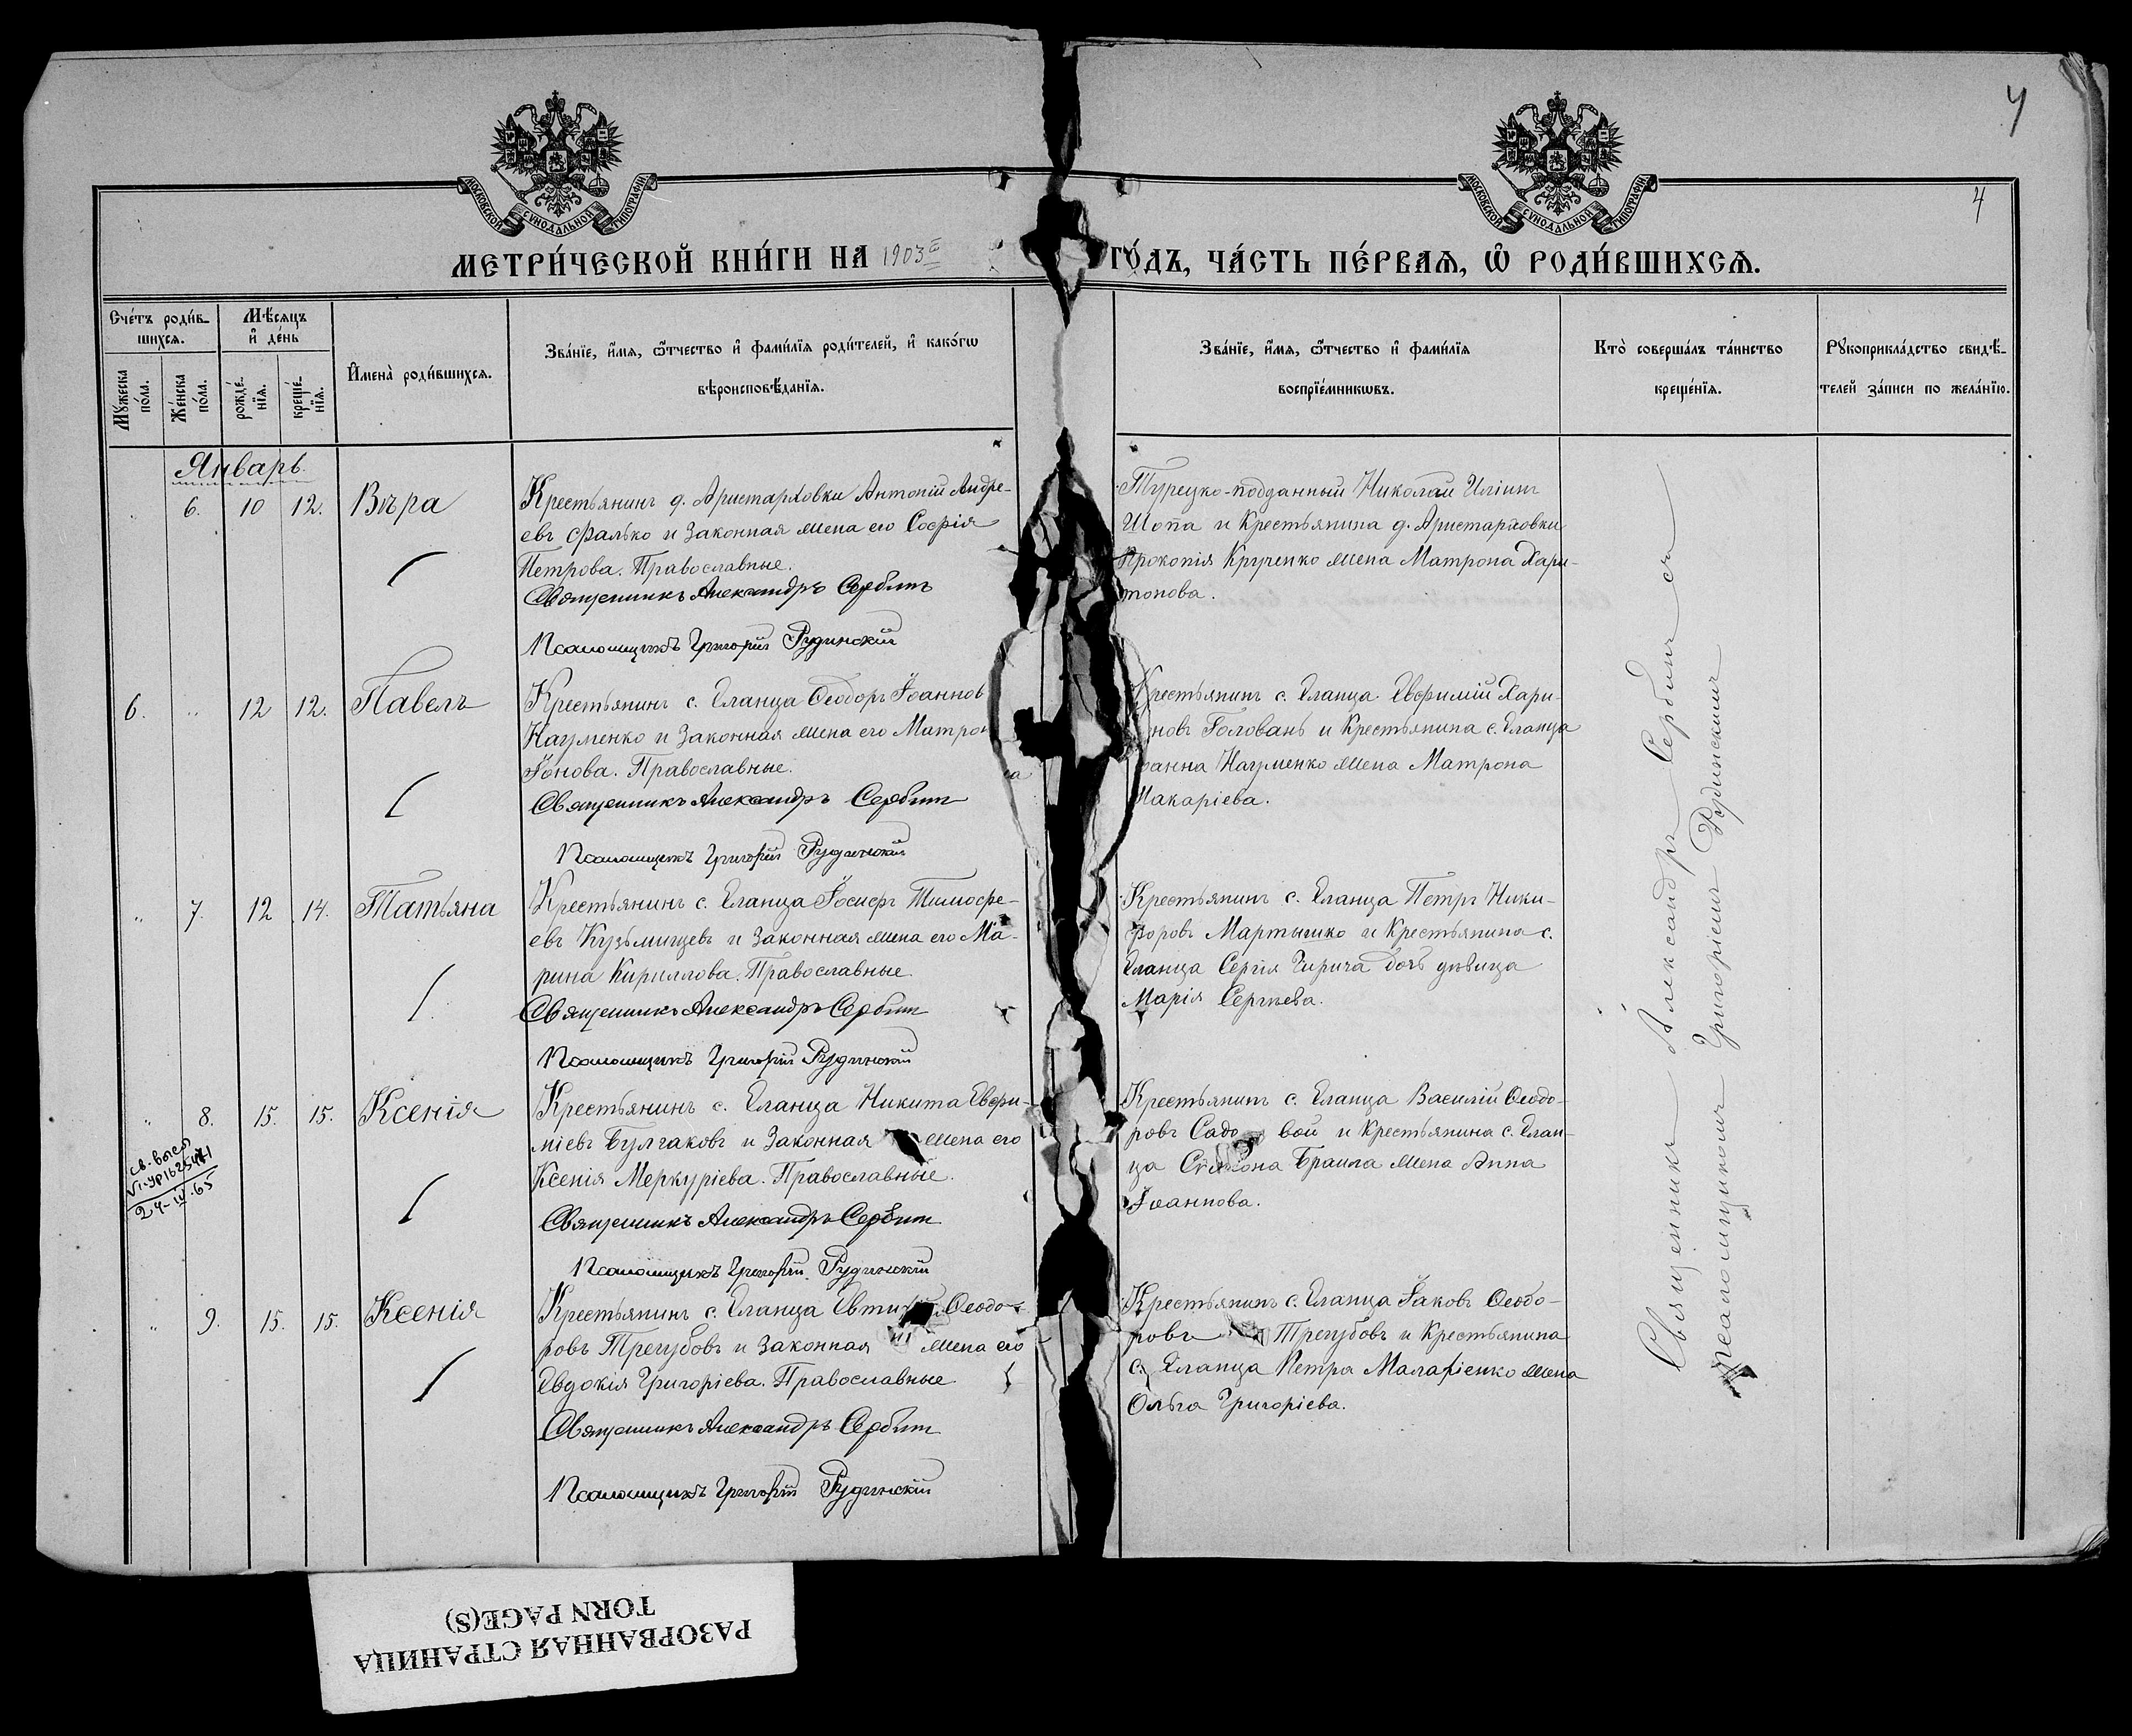 4
4
МОСКОВСКОЙ СУНОДАЛЬНОЙ ТИПОГРАФІИ
МОСКОВСКОЙ СУНОДАЛЬНОЙ ТИПОГРАФІИ
МЕТРИ́ЧЕСКОЙ КНИ́ГИ НА 1903 ГО́ДЪ, ЧА́СТЬ ПЕ́РВАѦ, Ѡ҆ РОДИ́ВШИХСѦ.
Сче́тъ роди́в-
шихсѧ.
Мѣ́сѧцъ
и҆ де́нь
Мꙋ́жеска
по́ла.
Же́нска
по́ла.
рожде́-
нїѧ.
креще́-
нїѧ.
И҆мена̀ роди́вшихсѧ.
Зва́нїе, и҆́мѧ, ѻ҆́тчество и҆ фами́лїѧ роди́телей, и҆ како́гѡ
вѣроисповѣ́данїѧ.
Зва́нїе, и҆́мѧ, ѻ҆́тчество и҆ фами́лїѧ
воспрїе́мникѡвъ.
Кто̀ соверша́лъ та́инство
креще́нїѧ.
Рꙋкоприкла́дство свидѣ́-
телей за́писи по жела́нїю.
Январь.
6. 10 12. Вѣра
Крестьянинъ д. Аристарховки Антоній Андре-
евъ Фалько и законная жена его Софія
Петрова. Православные.
Священникъ Александръ Сербинъ
Псаломщикъ Григорій Рудинскій
Турецко-подданный Николай Иліинъ
Шопа и Крестьянина д. Аристарховки
Прокопія Крученко жена Матрона Хари-
тонова.
6. 12 12. Павелъ
Крестьянинъ с. Еланца Ѳеодоръ Іоанновъ
Науменко и законная жена его Матрон
Іонова. Православные.
Священникъ Александръ Сербинъ
Псаломщикъ Григорій Рудинскій
Крестьянинъ с. Еланца Евфимій Хари-
новъ Головань и Крестьянина с. Еланца
оанна Науменко жена Матрона
Макаріева.
7. 12 14. Татьяна
Крестьянинъ с. Еланца Іосифъ Тимофе-
евъ Кузьмищевъ и законная жена его Ма-
рина Кириллова. Православные
Священникъ Александръ Сербинъ
Псаломщикъ Григорій Рудинскій
Крестьянинъ с. Еланца Петръ Ники-
форовъ Мартышко и Крестьянина с.
Еланца Сергія Чирича дочь дѣвица
Марія Сергѣева.
8. 15. 15. Ксенія
Крестьянинъ с. Еланца Никита Евфи-
міевъ Булгаковъ и законная жена его
Ксенія Меркуріева. Православные.
Священникъ Александръ Сербинъ
Псаломщикъ Григорій Рудинскій
Крестьянинъ с. Еланца Василій Ѳеодо-
ровъ Садо вой и Крестьянина с. Елан-
ца Симеона Браила жена Анна
Іоаннова.
св. высл
24-IV-65
9. 15. 15. Ксенія
Крестьянинъ с. Еланца Евтихій Ѳеодо-
ровъ Трегубовъ и законная жена его
Евдокія Григоріева. Православные
Священникъ Александръ Сербинъ
Псаломщикъ Григорій Рудинскій
Крестьянинъ с. Еланца Іаковъ Ѳеодо-
ровъ Трегубовъ и Крестьянина
с. Еланца Петра Малафіенко жена
Ольга Григоріева.
Священникъ Александръ Сербинъ съ
псаломщикомъ Григоріемъ Рудинскимъ
РАЗОРВАННАЯ СТРАНИЦА
TORN PAGE(S)